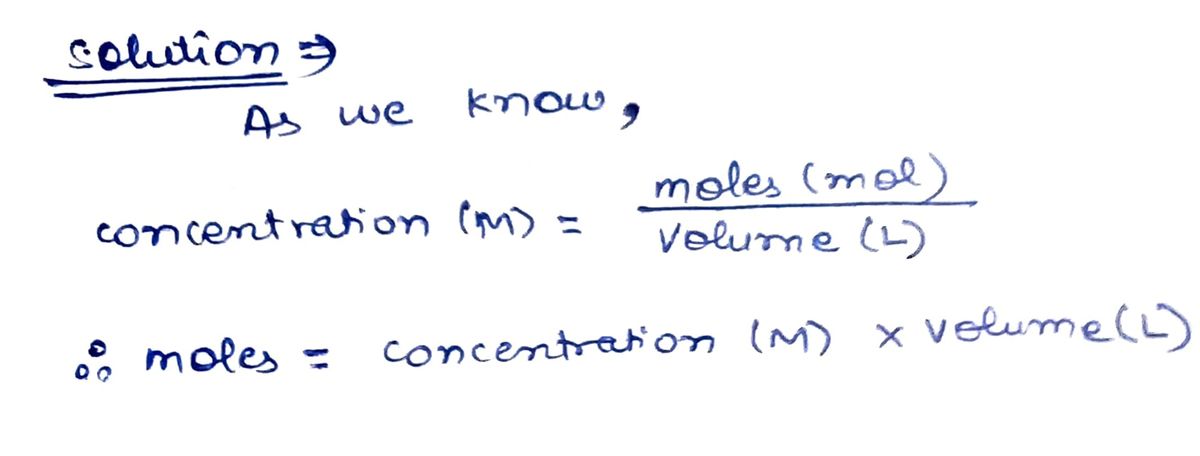 solution ⇒
As we know,
concentration (M) = moles (mol) / volume (L)
∴ moles = concentration (M) × volume(L)